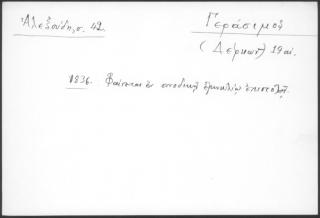 Ἀλεξούδης σ. 42.
Γεράσιμος
(Δέρκων) 19 αἰ.
1836. Φαίνεται ἐν συνοδικῇ ἐπιστολῇ.